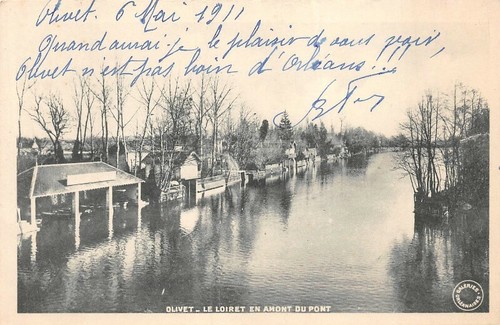 Olivet. 6 Mai 1911
Quand aurai-je le plaisir de vous voir,
Olivet n'est pas loin d'Orléans...
OLIVET - LE LOIRET EN AMONT DU PONT
GALERIES ORLÉANAISES